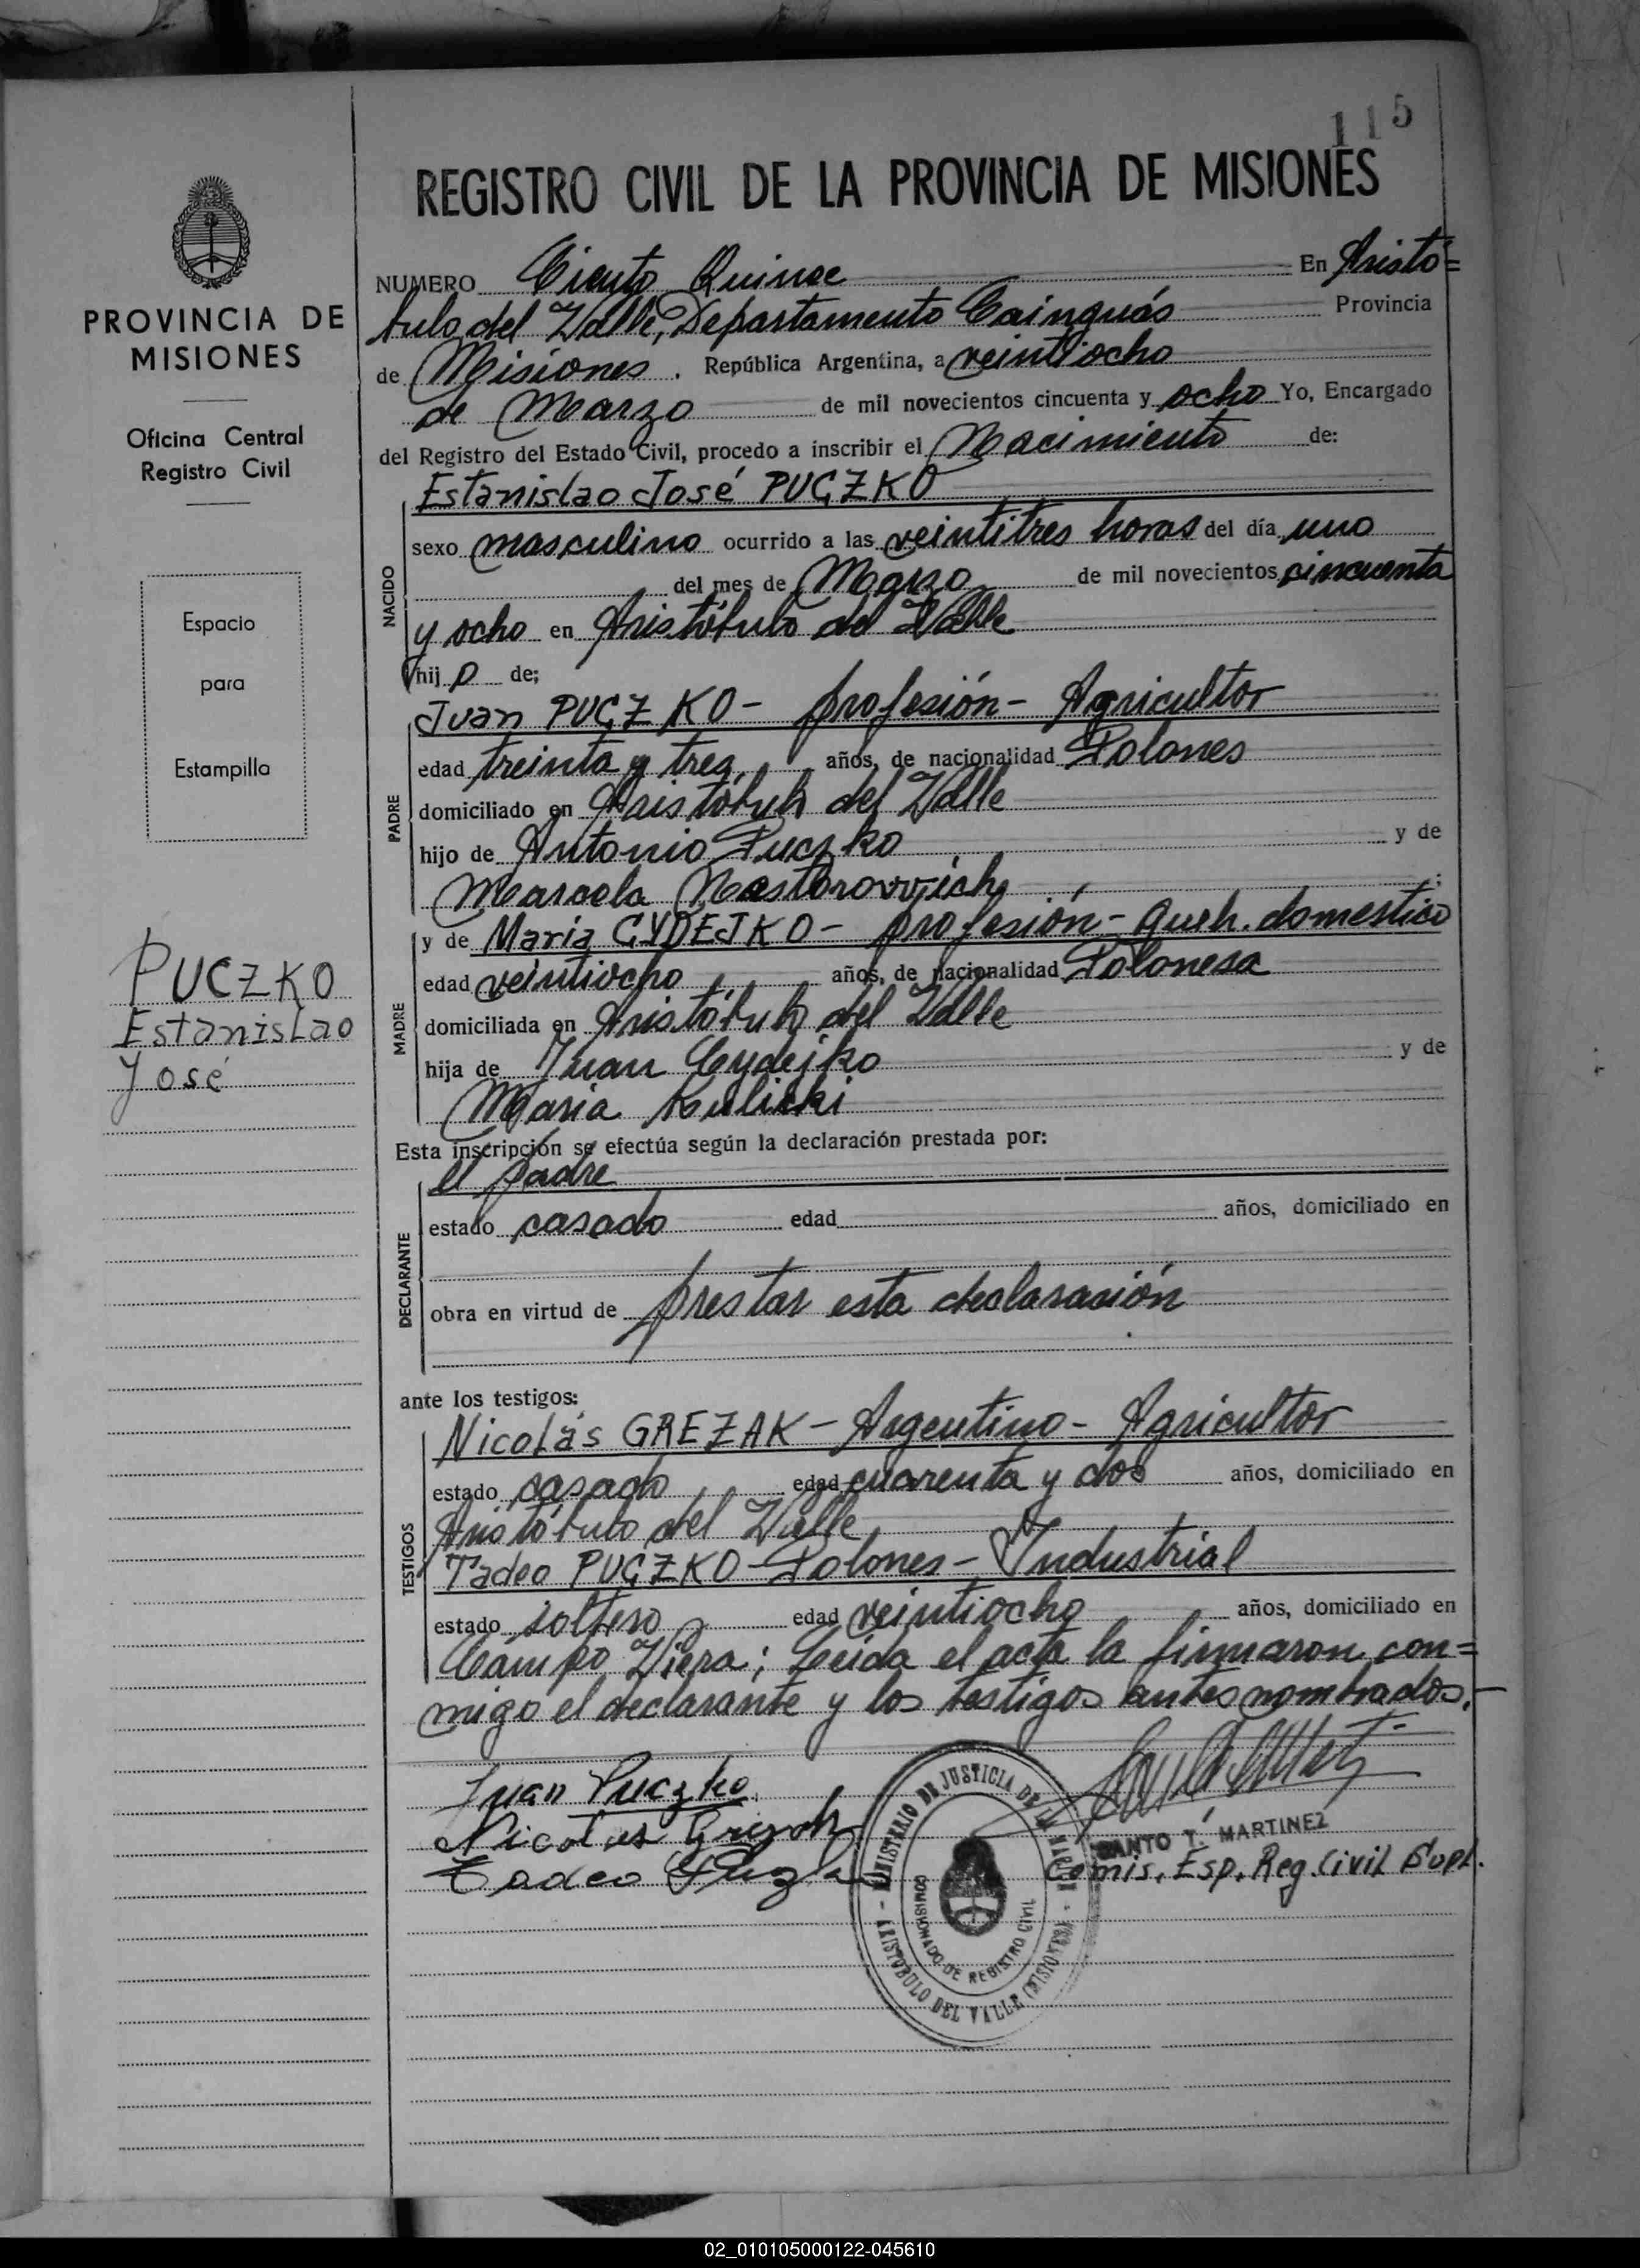 115
REGISTRO CIVIL DE LA PROVINCIA DE MISIONES
PROVINCIA DE
MISIONES
Oficina Central
Registro Civil
Espacio
para
Estampilla
PUCZKO
Estanislao
José
NUMERO Ciento Quince En Aristó=
bulo del Valle, Departamento Cainguás Provincia
de Misiones, República Argentina, a veintiocho
de Marzo de mil novecientos cincuenta y ocho Yo, Encargado
del Registro del Estado Civil, procedo a inscribir el Nacimiento de:
NACIDO
Estanislao José PUCZKO
sexo masculino ocurrido a las veintitres horas del día uno
del mes de Marzo de mil novecientos cincuenta
y ocho en Aristóbulo del Valle
hijo de;
PADRE
Juan PUCZKO - profesión - Agricultor
edad treinta y tres, años, de nacionalidad Polones
domiciliado en Aristóbulo del Valle
hijo de Antonio Puczko y de
Marcela Nestorowich ;
MADRE
y de Maria CYDEJKO - profesión - queh. domestico
edad veintiocho años, de nacionalidad Polonesa
domiciliada en Aristóbulo del Valle
hija de Juan Cydejko y de
Maria Kulicki
Esta inscripción se efectúa según la declaración prestada por:
DECLARANTE
el padre
estado casado edad años, domiciliado en
obra en virtud de prestar esta declaración
ante los testigos:
TESTIGOS
Nicolás GREZAK - Argentino - Agricultor
estado casado edad cuarenta y dos años, domiciliado en
Aristóbulo del Valle,
Tadeo PUCZKO - Polones - Industrial
estado soltero edad veintiocho años, domiciliado en
Campo Viera; Leida el acta la firmaron con=
migo el declarante y los testigos antes nombrados.-
Juan Puczko
Nicolas
Tadeo
MINISTERIO DE JUSTICIA DE LA
COMISIONADO DE REGISTRO CIVIL
ARISTOBULO DEL VALLE (MISIONES)
SANTO T. MARTINEZ
Comis. Esp. Reg. Civil Supl.
02_010105000122-045610